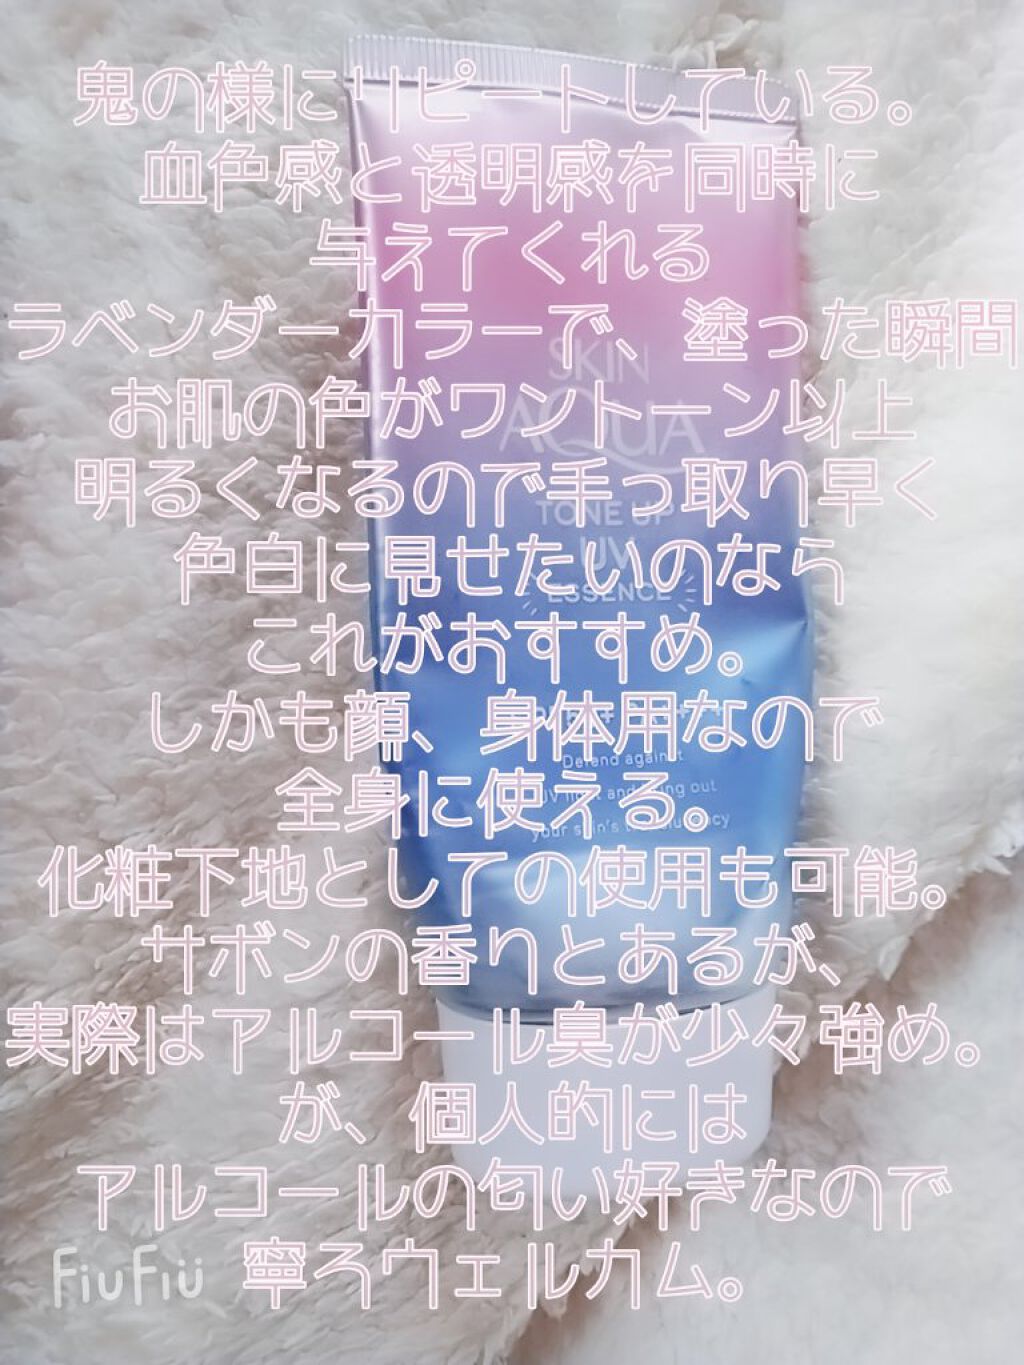 鬼の様にリピートしている。
血色感と透明感を同時に
与えてくれる
ラベンダーカラーで、塗った瞬間
お肌の色がワントーン以上
明るくなるので手っ取り早く
色白に見せたいのなら
これがおすすめ。
しかも顔、身体用なので
全身に使える。
化粧下地としての使用も可能。
サボンの香りとあるが、
実際はアルコール臭が少々強め。
が、個人的には
アルコールの匂い好きなので
寧ろウェルカム。
SKIN
AQUA
TONE UP
UV
ESSENCE
Defend against
UV light and bring out
your skin's translucency
FiuFiu